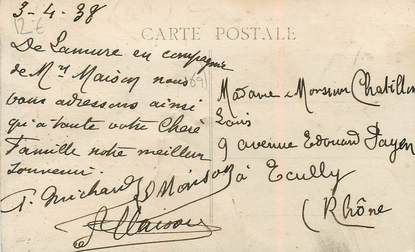 3-4-38
12 €
CARTE POSTALE
De Lamure en compagnie
de Mr Maison nous
vous adressons ainsi
qu'a toute votre Chère
Famille notre meilleur
souvenir.
P. Guichard J Moison
Maison
69
Madame Monsieur Chatillon
Louis
9 avenue Edouard Payen
à Ecully
(Rhône